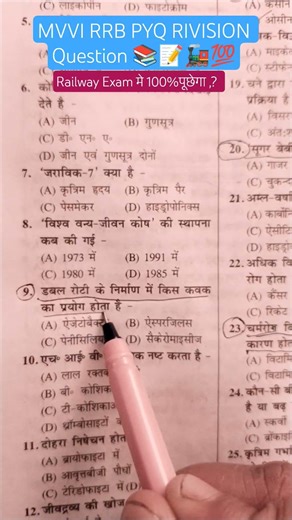 MVVI RRB PYQ RIVISION
Question 📚 📝 🚂 💯
Railway Exam मे 100%पूछेगा ,?
(C) लाइकोपीन (D) फाइटोक्रोम
5.
6. को
देते है -
(A) जीन (B) गुणसूत्र
(C) डी० एन० ए०
(D) जीन एवं गुणसूत्र दोनों
7. 'जराविक-7' क्या है -
(A) कृत्रिम हृदय (B) कृत्रिम पैर
(C) पेसमेकर (D) हाइड्रोपोनिक्स
8. 'विश्व वन्य-जीवन कोष' की स्थापना
कब की गई -
(A) 1973 में (B) 1991 में
(C) 1980 में (D) 1985 में
9. डबल रोटी के निर्माण में किस कवक
का प्रयोग होता है -
(A) ऐजेटोबै (B) ऐस्परजिलस
(C) पेनीसिलि (D) सैकेरोमाइसीज
10. एच० आई० वी० नष्ट करता है -
(A) लाल रक्त
(B) बी० कोशिक
(C) टी-कोशिका
(D) थ्रॉम्बोसाइटों
11. दोहरा निषेचन होता
(A) ब्रायोफाइटा में
(B) आवृत्तबीजी पौधों
(C) टेरिडोफाइटा में (D)
12. जीवद्रव्य की खोज
(C) स्टीफेन
19. चने द्वारा
प्रक्रिया है
(A) विसर
(C) अंत:
20. सूगर बेबी
(A) गाजर
(C) चुकन्द
21. अम्ल-वर्षा
(A) कार्बनि
(C) ऐसीटि
(D) हाइड्रो
22. अधिक वि
रोग होता
(A) कैंसर
(C) रिकेट
23. चर्मरोग वि
कारण होता
(A) विटामि
(C) विटामि
24. कौन-सी बी
है या बढ़
(A) स्कर्वी
(C) ब्रांको
25. कृत्रिम गर्भा